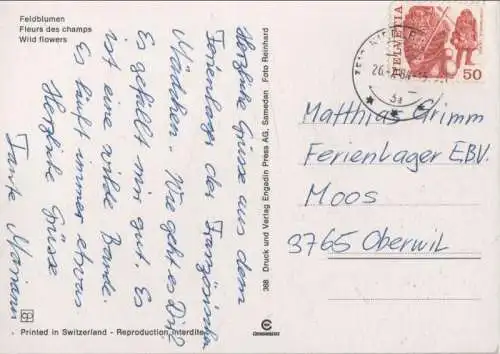 Feldblumen
Fleurs des champs
Wild flowers
Herzliche Grüsse aus dem
Ferienlager der Französischen
Mädchen. Wie geht es Dir?
Es gefällt mir gut. Es
ist eine wilde Bande.
Es läuft immer etwas.
Herzliche Grüsse
Tante Mariann
Printed in Switzerland - Reproduction interdite
388 Druck und Verlag Engadin Press AG, Samedan Foto Reinhard
HELVETIA
50
Matthias Grimm
Ferienlager EBV.
Moos
3765 Oberwil